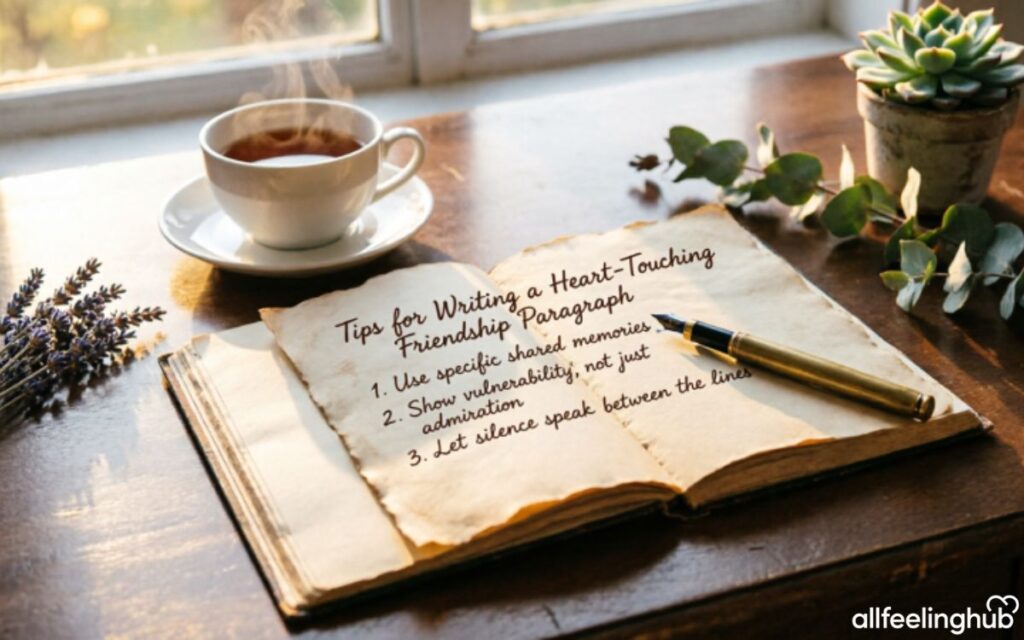 Tips for Writing a Heart-Touching
Friendship Paragraph
1. Use specific shared memories
2. Show vulnerability, not just
admiration
3. Let silence speak between the lines
allfeelinghub